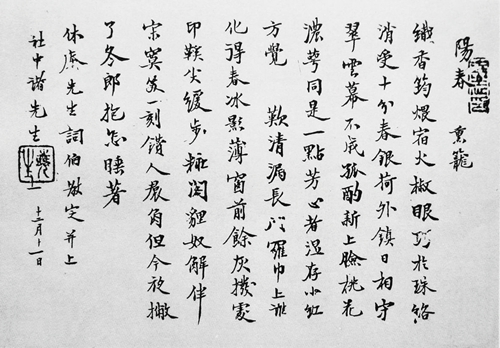 陽春 熏籠
織香筠煨宿火椒眼巧於珠絡
消受十分春銀荷外鎮日相守
翠雲幕不成孤酌新上臉桃花
濃萼同是一點芳心者溫存小紅
方覺 歎清漏長門羅巾上誰
化得春冰影薄窗前餘灰撥處
印鞵尖緩步閑貍奴解伴
寂寞笑一刻人角但今夜撇
了冬郎抱愁睡著
休庵先生詞伯敲定并上
社中諸先生
十二月十一日